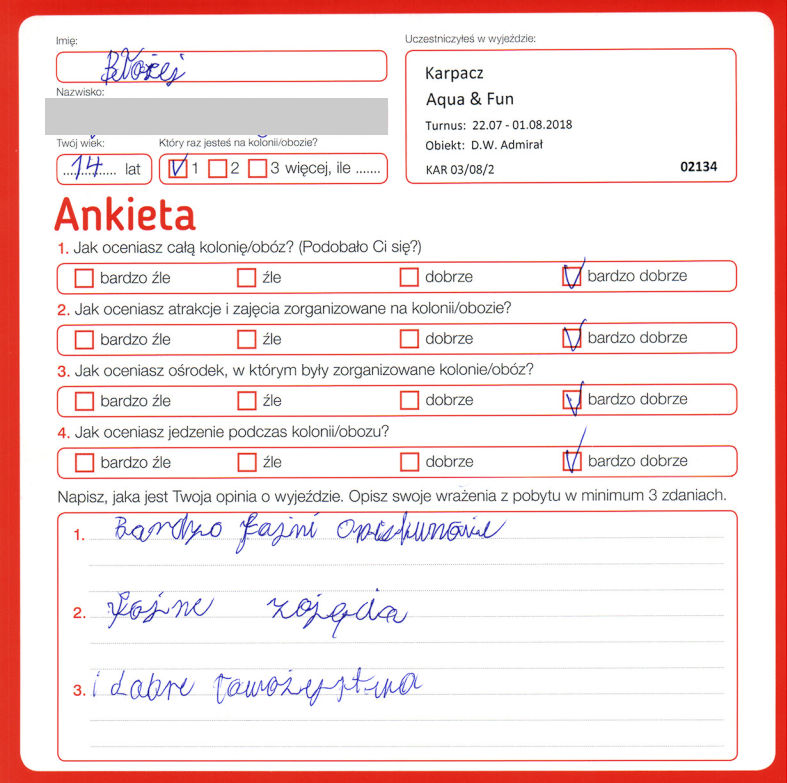 Imię:
Błożej
Uczestniczyłeś w wyjeździe:
Karpacz
Aqua & Fun
Turnus: 22.07 - 01.08.2018
Obiekt: D.W. Admirał
KAR 03/08/2
02134
Nazwisko:
Twój wiek:
14 lat
Który raz jesteś na kolonii/obozie?
1 2 3 więcej, ile .......
Ankieta
1. Jak oceniasz całą kolonię/obóz? (Podobało Ci się?)
bardzo źle źle dobrze bardzo dobrze
2. Jak oceniasz atrakcje i zajęcia zorganizowane na kolonii/obozie?
bardzo źle źle dobrze bardzo dobrze
3. Jak oceniasz ośrodek, w którym były zorganizowane kolonie/obóz?
bardzo źle źle dobrze bardzo dobrze
4. Jak oceniasz jedzenie podczas kolonii/obozu?
bardzo źle źle dobrze bardzo dobrze
Napisz, jaka jest Twoja opinia o wyjeździe. Opisz swoje wrażenia z pobytu w minimum 3 zdaniach.
1. Bardzo fajni opiekunowie
2. fajne zajęcia
3. i dobre towożystwa